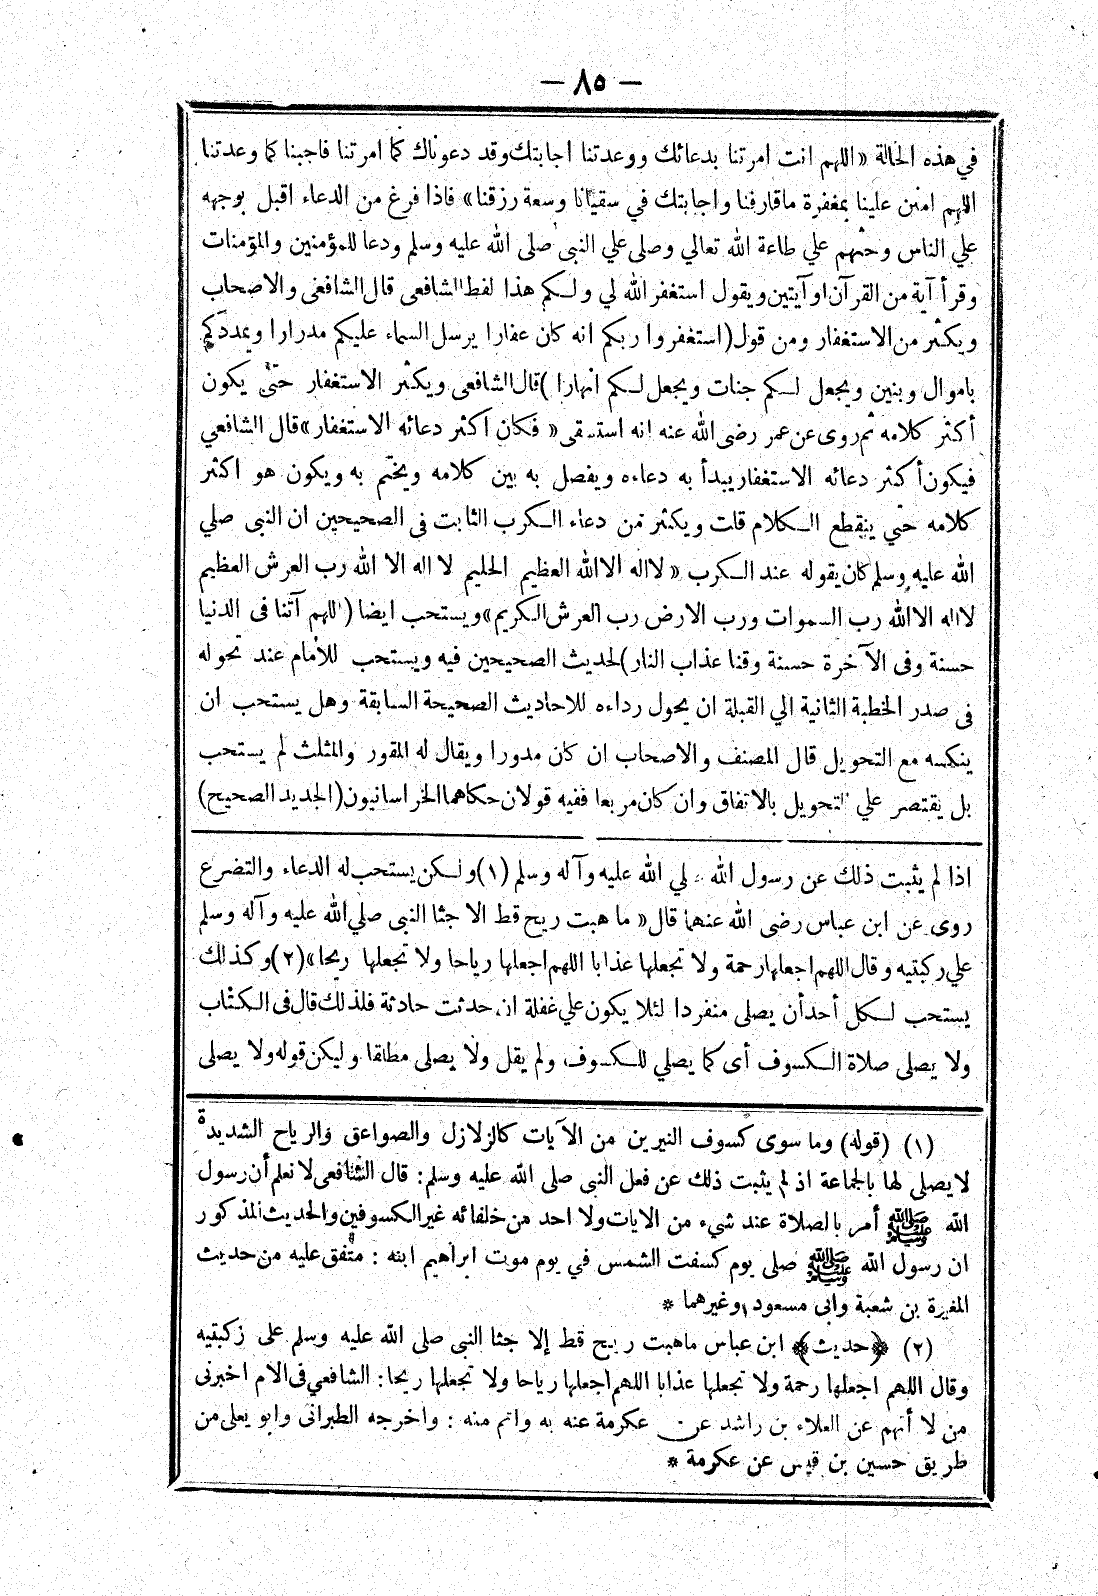 — ٨٥ —
في هذه الحالة «اللهم انت امرتنا بدعائك ووعدتنا اجابتك وقد دعوناك كما امرتنا فاجبنا كما وعدتنا
اللهم امنن علينا بمغفرة ماقارفنا واجابتك في سقيانا وسعة رزقنا» فاذا فرغ من الدعاء اقبل بوجهه
علي الناس وحثهم علي طاعة الله تعالي وصلى علي النبى صلى الله عليه وسلم ودعا للمؤمنين والمؤمنات
وقرأ آية من القرآن او آيتين ويقول استغفر الله لي ولكم هذا لفظ الشافعى قال الشافعى والاصحاب
ويكثر من الاستغفار ومن قول (استغفروا ربكم انه كان غفارا يرسل السماء عليكم مدرارا ويمددكم
باموال وبنين ويجعل لكم جنات ويجعل لكم انهارا) قال الشافعى ويكثر الاستغفار حتى يكون
أكثر كلامه ثم روى عن عمر رضى الله عنه انه استسقى «فكان اكثر دعائه الاستغفار» قال الشافعي
فيكون أكثر دعائه الاستغفار يبدأ به دعاءه ويفصل به بين كلامه ويختم به ويكون هو اكثر
كلامه حتي ينقطع الكلام قلت ويكثر من دعاء الكرب الثابت فى الصحيحين ان النبى صلي
الله عليه وسلم كان يقوله عند الكرب «لااله الاالله العظيم الحليم لا اله الا الله رب العرش العظيم
لااله الاالله رب السموات ورب الارض رب العرش الكريم» ويستحب ايضا (اللهم آتنا فى الدنيا
حسنة وفى الآخرة حسنة وقنا عذاب النار) لحديث الصحيحين فيه ويستحب للأمام عند تحوله
فى صدر الخطبة الثانية الي القبلة ان يحول رداءه للاحاديث الصحيحة السابقة وهل يستحب ان
ينكسه مع التحويل قال المصنف والاصحاب ان كان مدورا ويقال له المقور والمثلث لم يستحب
بل يقتصر علي التحويل بالاتفاق وان كان مربعا ففيه قولان حكاهما الخراسانيون (الجديد الصحيح)
اذا لم يثبت ذلك عن رسول الله صلي الله عليه وآله وسلم (١) ولكن يستحب له الدعاء والتضرع
روى عن ابن عباس رضى الله عنهما قال «ما هبت ريح قط الا جثا النبى صلي الله عليه وآله وسلم
علي ركبتيه وقال اللهم اجعلها رحمة ولا تجعلها عذابا اللهم اجعلها رياحا ولا تجعلها ريحا» (٢) وكذلك
يستحب لكل أحد أن يصلى منفردا لئلا يكون علي غفلة ان حدثت حادثة فلذلك قال فى الكتاب
ولا يصلى صلاة الكسوف أى كما يصلي للكسوف ولم يقل ولا يصلى مطلقا وليكن قوله ولا يصلى
(١) (قوله) وما سوى كسوف النيرين من الآيات كالزلازل والصواعق والرياح الشديدة
لا يصلى لها بالجماعة اذ لم يثبت ذلك عن فعل النبى صلى الله عليه وسلم: قال الشافعى لا نعلم أن رسول
الله ﷺ أمر بالصلاة عند شىء من الايات ولا احد من خلفائه غير الكسوفين والحديث المذكور
ان رسول الله ﷺ صلى يوم كسفت الشمس في يوم موت ابراهيم ابنه : متفق عليه من حديث
المغيرة بن شعبة وابى مسعود وغيرهما *
(٢) ﴿حديث﴾ ابن عباس ماهبت ريح قط إلا جثا النبى صلى الله عليه وسلم على ركبتيه
وقال اللهم اجعلها رحمة ولا تجعلها عذابا اللهم اجعلها رياحا ولا تجعلها ريحا: الشافعي فى الام اخبرنى
من لا أتهم عن العلاء بن راشد عن عكرمة عنه به واتم منه : واخرجه الطبرانى وابو يعلى من
طريق حسين بن قيس عن عكرمة *